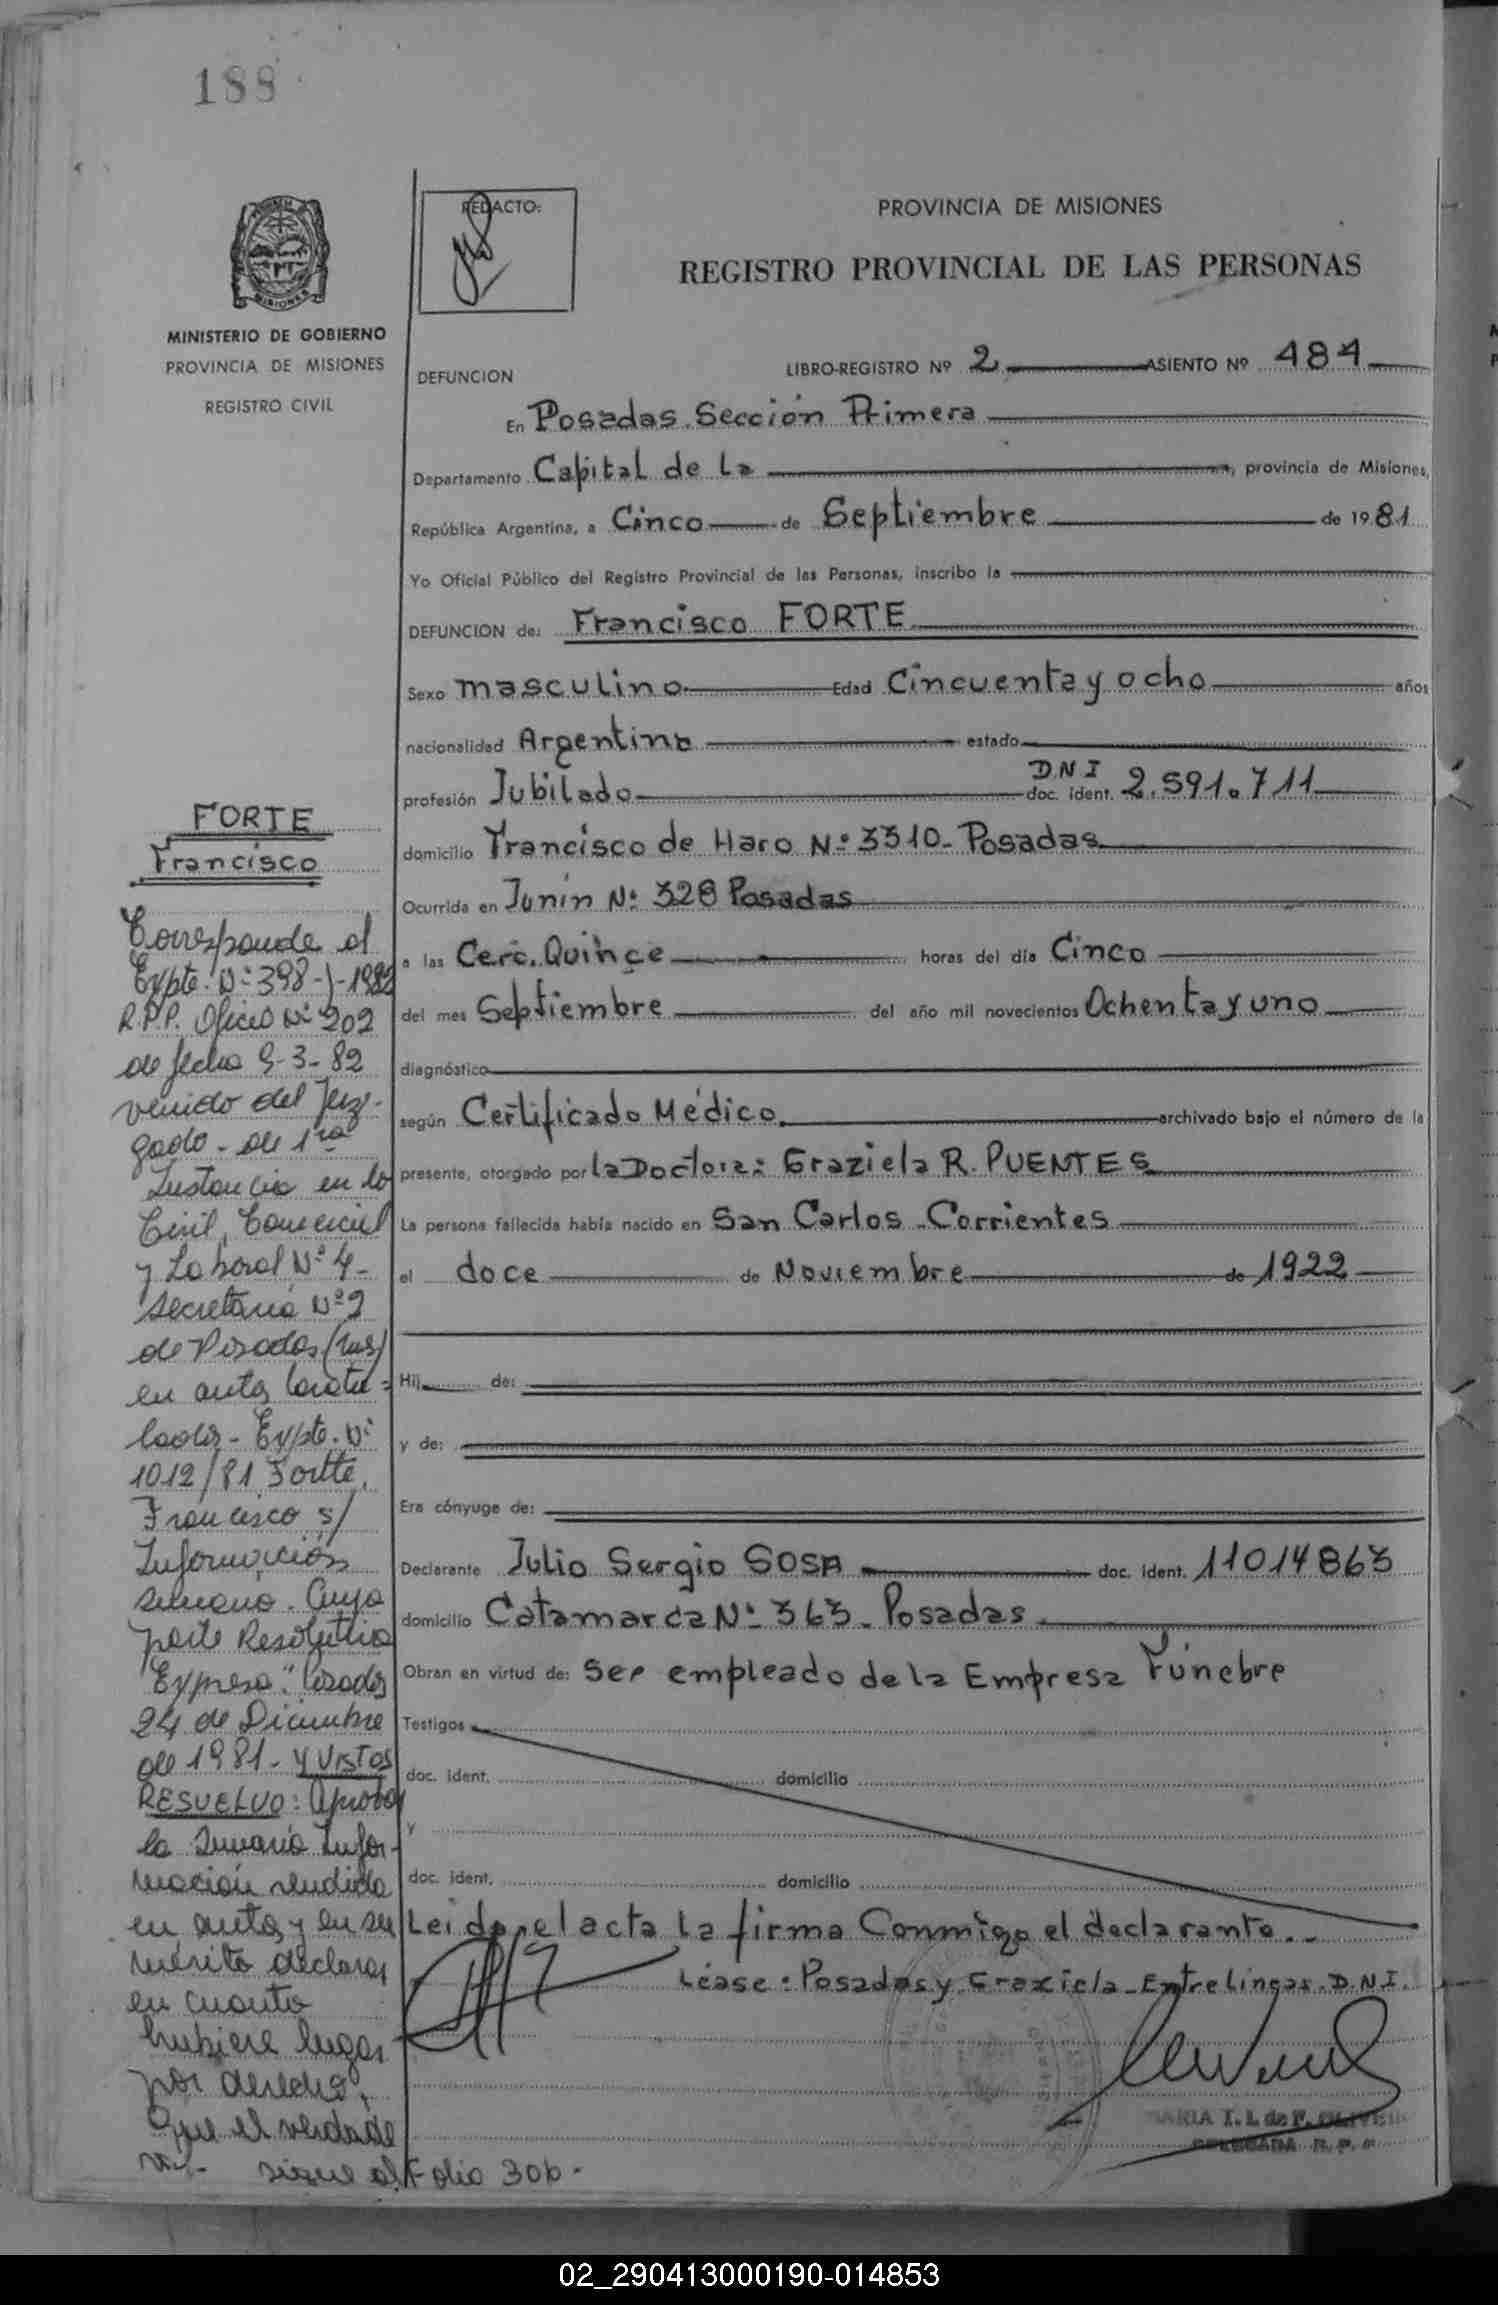 188
REDACTO:
PROVINCIA DE MISIONES
REGISTRO PROVINCIAL DE LAS PERSONAS
MISIONES
MINISTERIO DE GOBIERNO
PROVINCIA DE MISIONES
REGISTRO CIVIL
DEFUNCION LIBRO-REGISTRO Nº 2 ASIENTO Nº 484
En Posadas. Sección Primera
Departamento Capital de la , provincia de Misiones,
República Argentina, a Cinco de Septiembre de 1981
Yo Oficial Público del Registro Provincial de las Personas, inscribo la
DEFUNCION de: Francisco FORTE
Sexo masculino Edad Cincuenta y ocho años
nacionalidad Argentina estado
profesión Jubilado D.N.I doc. ident. 2.591.711
domicilio Francisco de Haro Nº 3310. Posadas
Ocurrida en Junín Nº 328 Posadas
a las Cero. Quince horas del día Cinco
del mes Septiembre del año mil novecientos Ochenta y uno
diagnóstico
según Certificado Médico. archivado bajo el número de la
presente, otorgado por la Doctora: Graziela R. PUENTES
La persona fallecida había nacido en San Carlos - Corrientes
el doce de Noviembre de 1922
Hij de:
y de:
Era cónyuge de:
Declarante Julio Sergio SOSA doc. ident. 11014863
domicilio Catamarca Nº 363 - Posadas
Obran en virtud de: Ser empleado de la Empresa Fúnebre
Testigos
doc. ident. domicilio
y
doc. ident. domicilio
Leída el acta la firma Conmigo el declarante..
Léase: Posadas y Graxiela - Entrelíneas. D.N.I.
MARIA I. L. de F. OLIVE
DELEGADA R. P. P
FORTE
Francisco
Corresponde al
Expte. Nº 398-J-1982
R.P.P. Oficio Nº 202
de fecha 9-3-82
venido del Juz-
gado - de 1ra
Instancia en lo
Civil, Comercial
y Laboral Nº 4-
Secretaria Nº 2
de Posadas (Mnes)
en autos caratu=
lados - Expte. Nº
1012/81 Fortte,
Francisco s/
Información
Sumaria. Cuya
parte Resolutiva
Expresa: "Posadas
24 de Diciembre
de 1981 - Y VISTOS
RESUELVO: Aprobar
la Sumaria Infor-
mación rendida
en autos y en su
mérito declarar
en cuanto
hubiere lugar
por derecho,
Que el verdade
ro/- sigue al Folio 306.
02_290413000190-014853